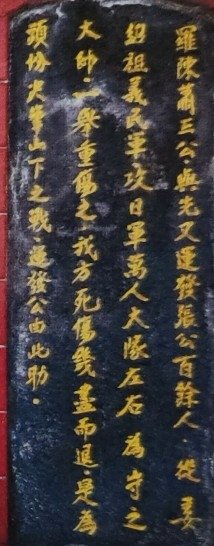 羅陳蕭三公與先又運發張公百餘人．從姜
紹祖義民軍攻日軍萬人大隊左右為守之
大帥．一舉重傷之我方死傷幾盡而退是為
頭份尖筆山下之戰．運發公由此助．